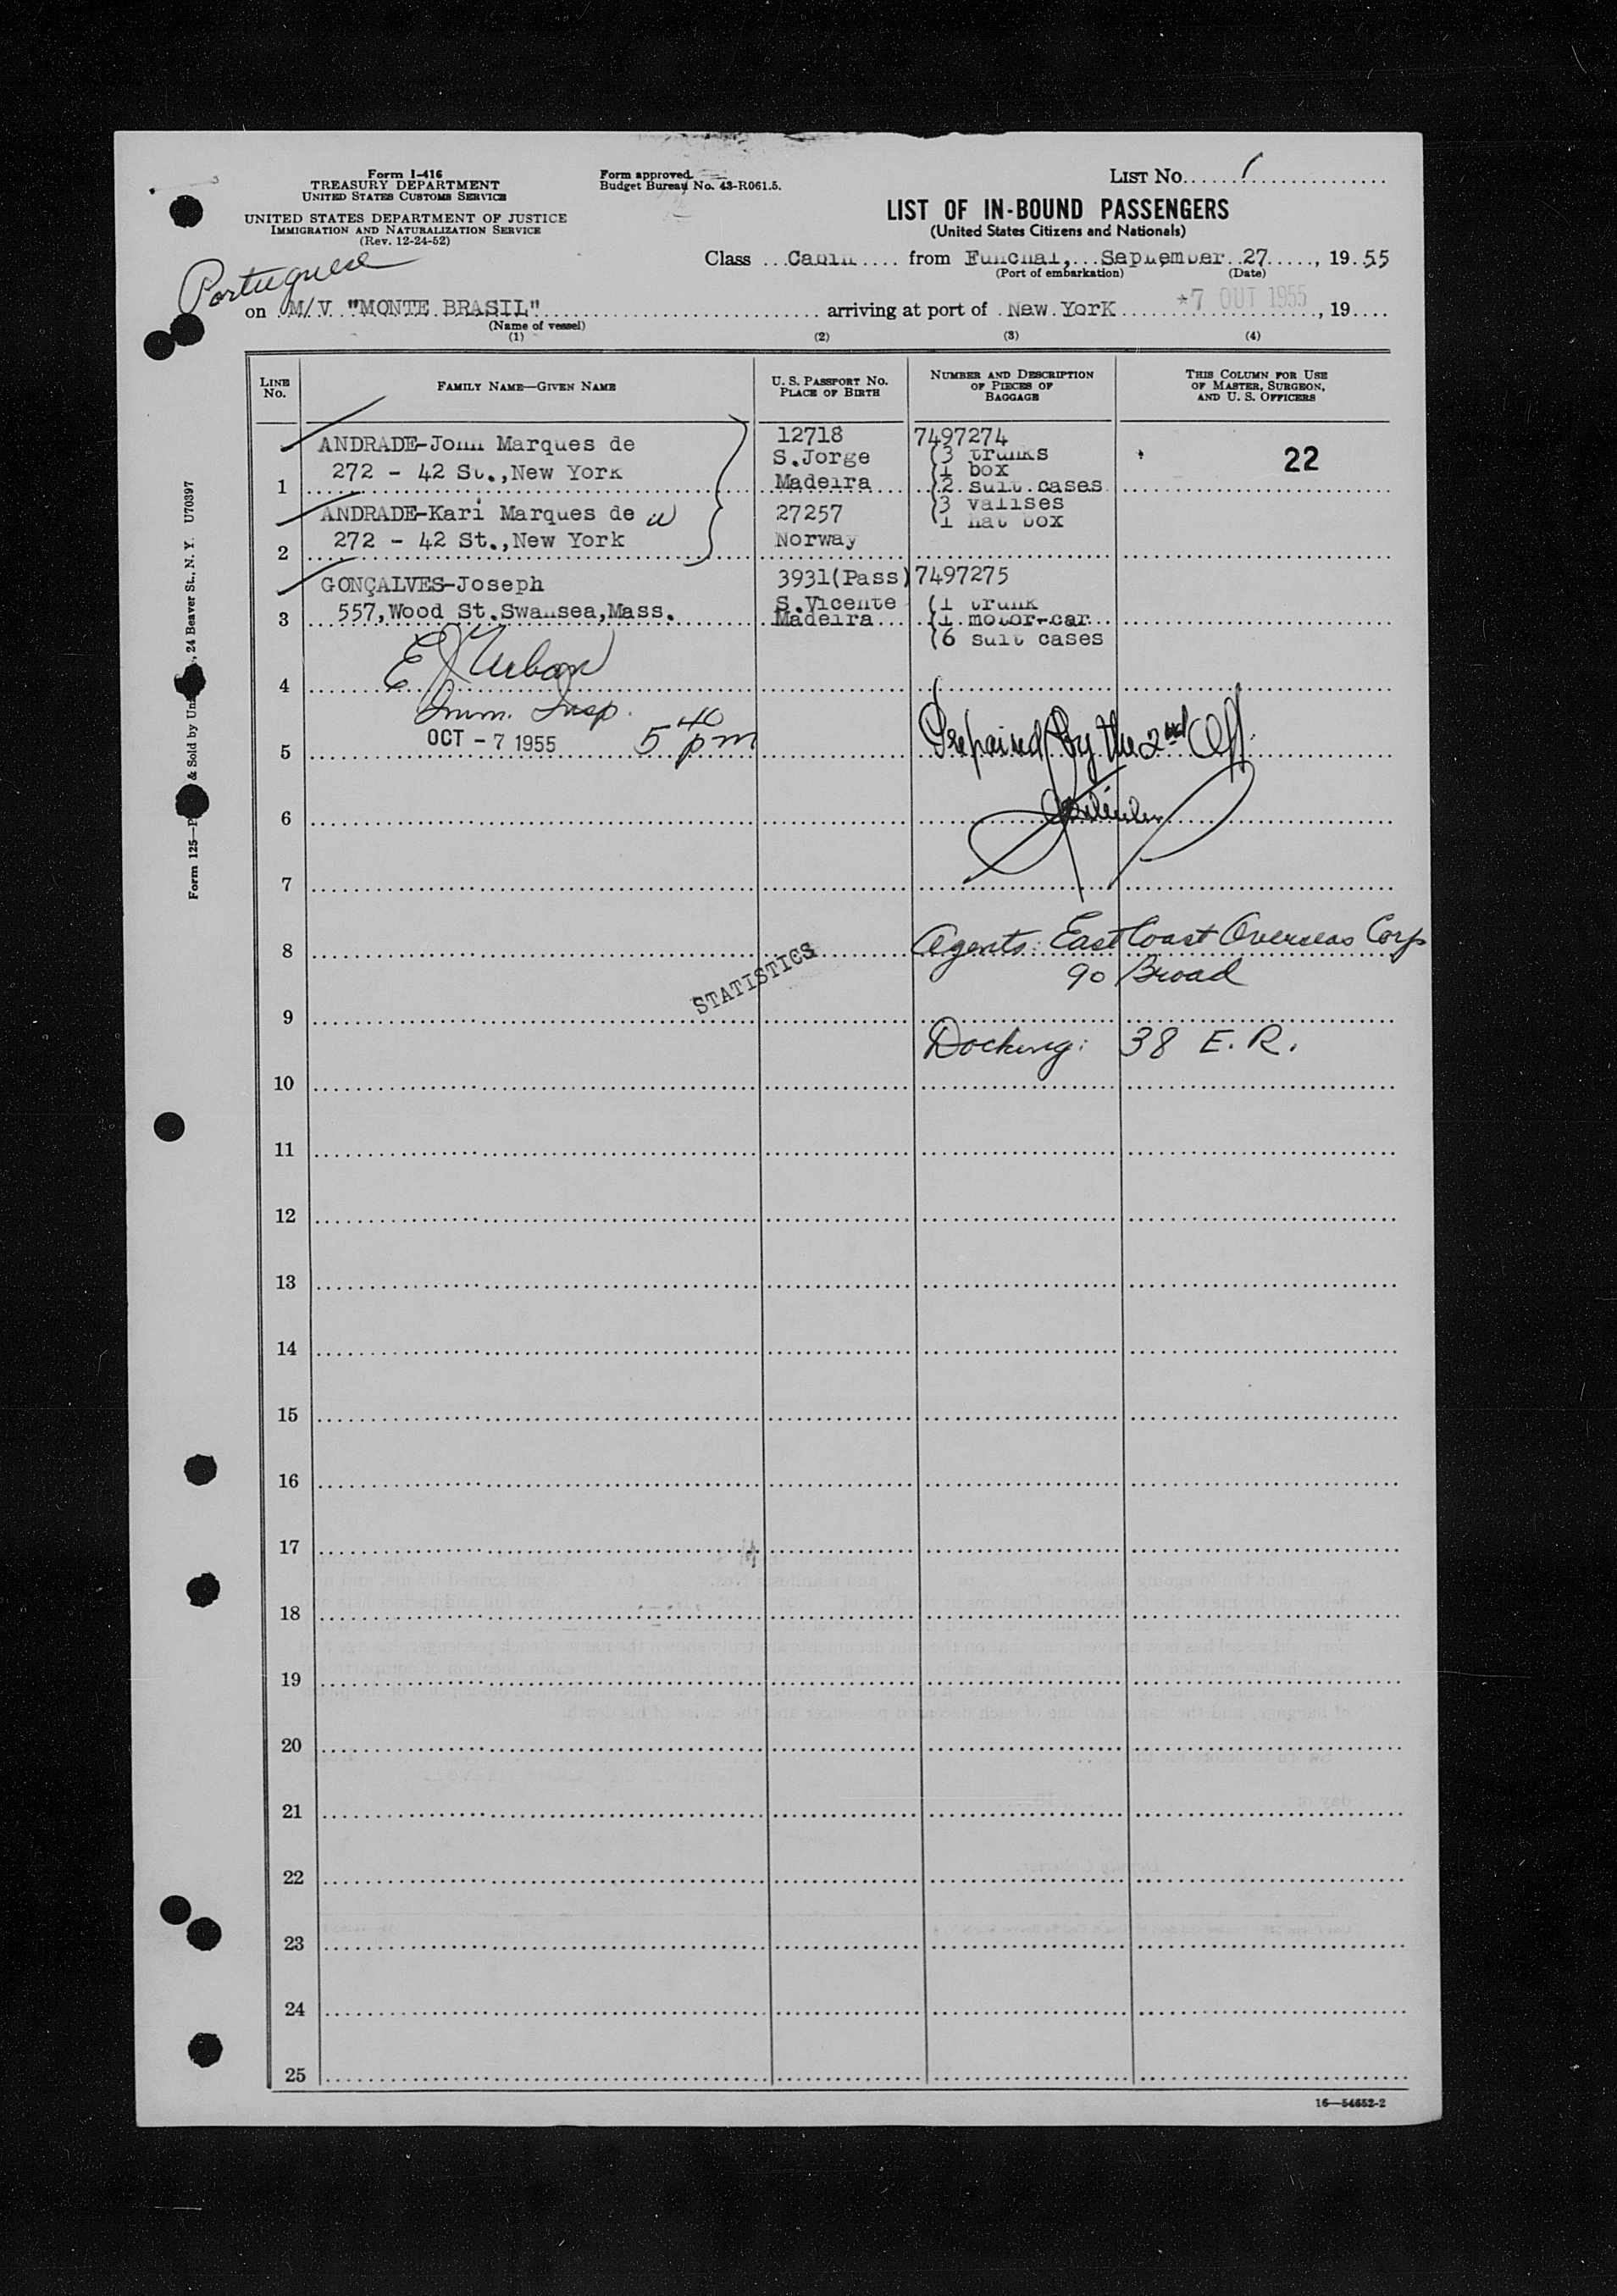 Form I-416
TREASURY DEPARTMENT
UNITED STATES CUSTOMS SERVICE
UNITED STATES DEPARTMENT OF JUSTICE
IMMIGRATION AND NATURALIZATION SERVICE
(Rev. 12-24-52)
Form approved.
Budget Bureau No. 43-R061.5.
LIST NO. 1
LIST OF IN-BOUND PASSENGERS
(United States Citizens and Nationals)
Portuguese
Class Cabin from Funchal, September 27, 1955
(Port of embarkation) (Date)
on M/V "MONTE BRASIL" arriving at port of New York *7 OUT 1955, 19
(Name of vessel)
(1) (2) (3) (4)
LINE No. FAMILY NAME—GIVEN NAME U. S. PASSPORT NO. PLACE OF BIRTH NUMBER AND DESCRIPTION OF PIECES OF BAGGAGE THIS COLUMN FOR USE OF MASTER, SURGEON, AND U. S. OFFICERS
ANDRADE-John Marques de 12718 7497274
272 - 42 St.,New York S.Jorge (3 trunks 22
(1 box
1 Madeira (2 suit cases
ANDRADE-Kari Marques de w 27257 (3 valises
(1 hat box
272 - 42 St.,New York Norway
2
GONÇALVES-Joseph 3931(Pass) 7497275
557,Wood St.Swansea,Mass. S.Vicente (1 trunk
3 Madeira (1 motor-car
(6 suit cases
4
Imm. Insp.
5 OCT - 7 1955 5 40 pm Prepaired by the 2nd Off.
6
7
8 Agents: East Coast Overseas Corp
90 Broad
STATISTICS
9
Docking: 38 E. R.
10
11
12
13
14
15
16
17
18
19
20
21
22
23
24
25
16—54652-2
Form 125— & Sold by , 24 Beaver St., N. Y. U70397